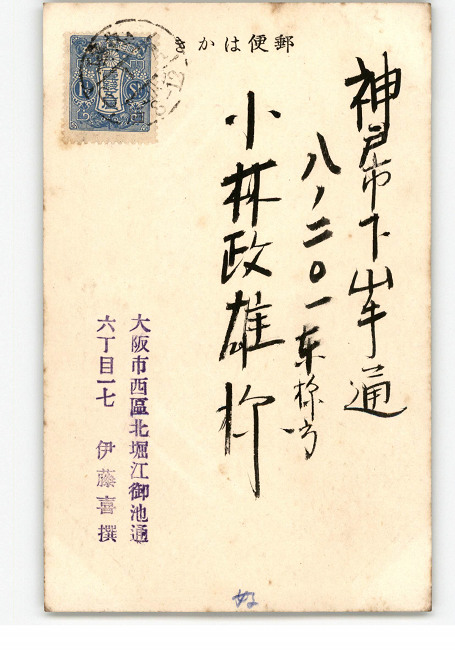 郵便はかき
神戸市下山手通
八ノ二〇一東様方
小林政雄様
大阪市西區北堀江御池通
六丁目一七 伊藤喜撰